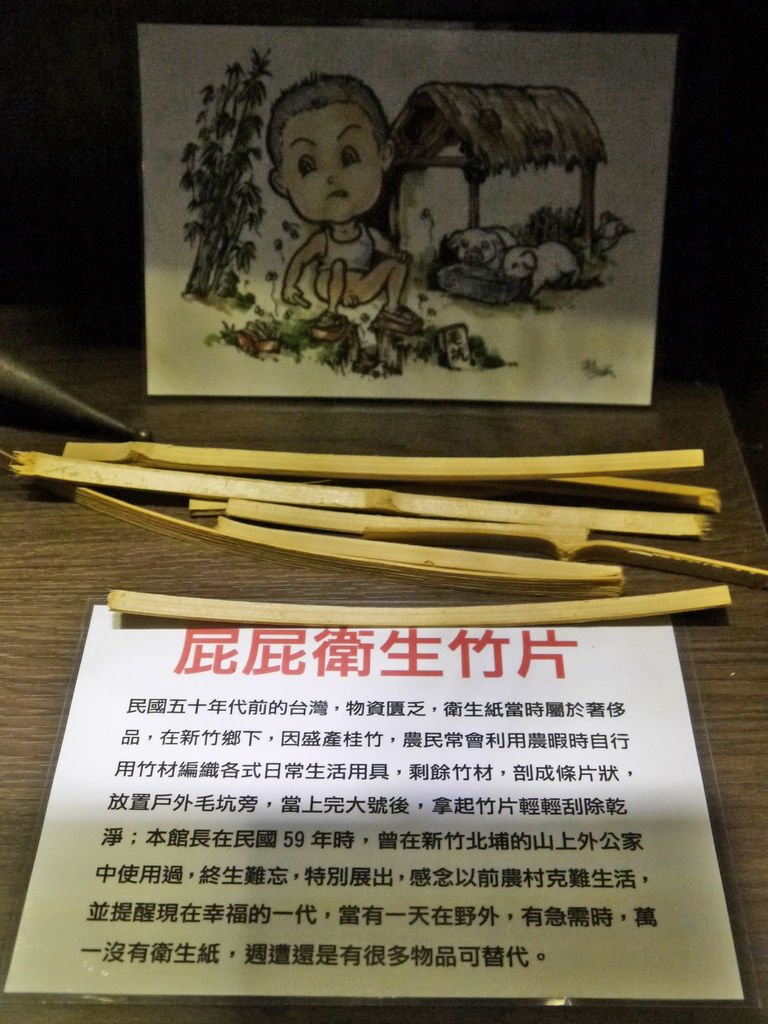 毛坑
屁屁衛生竹片
民國五十年代前的台灣，物資匱乏，衛生紙當時屬於奢侈
品，在新竹鄉下，因盛產桂竹，農民常會利用農暇時自行
用竹材編織各式日常生活用具，剩餘竹材，剖成條片狀，
放置戶外毛坑旁，當上完大號後，拿起竹片輕輕刮除乾
淨；本館長在民國 59 年時，曾在新竹北埔的山上外公家
中使用過，終生難忘，特別展出，感念以前農村克難生活，
並提醒現在幸福的一代，當有一天在野外，有急需時，萬
一沒有衛生紙，週遭還是有很多物品可替代。